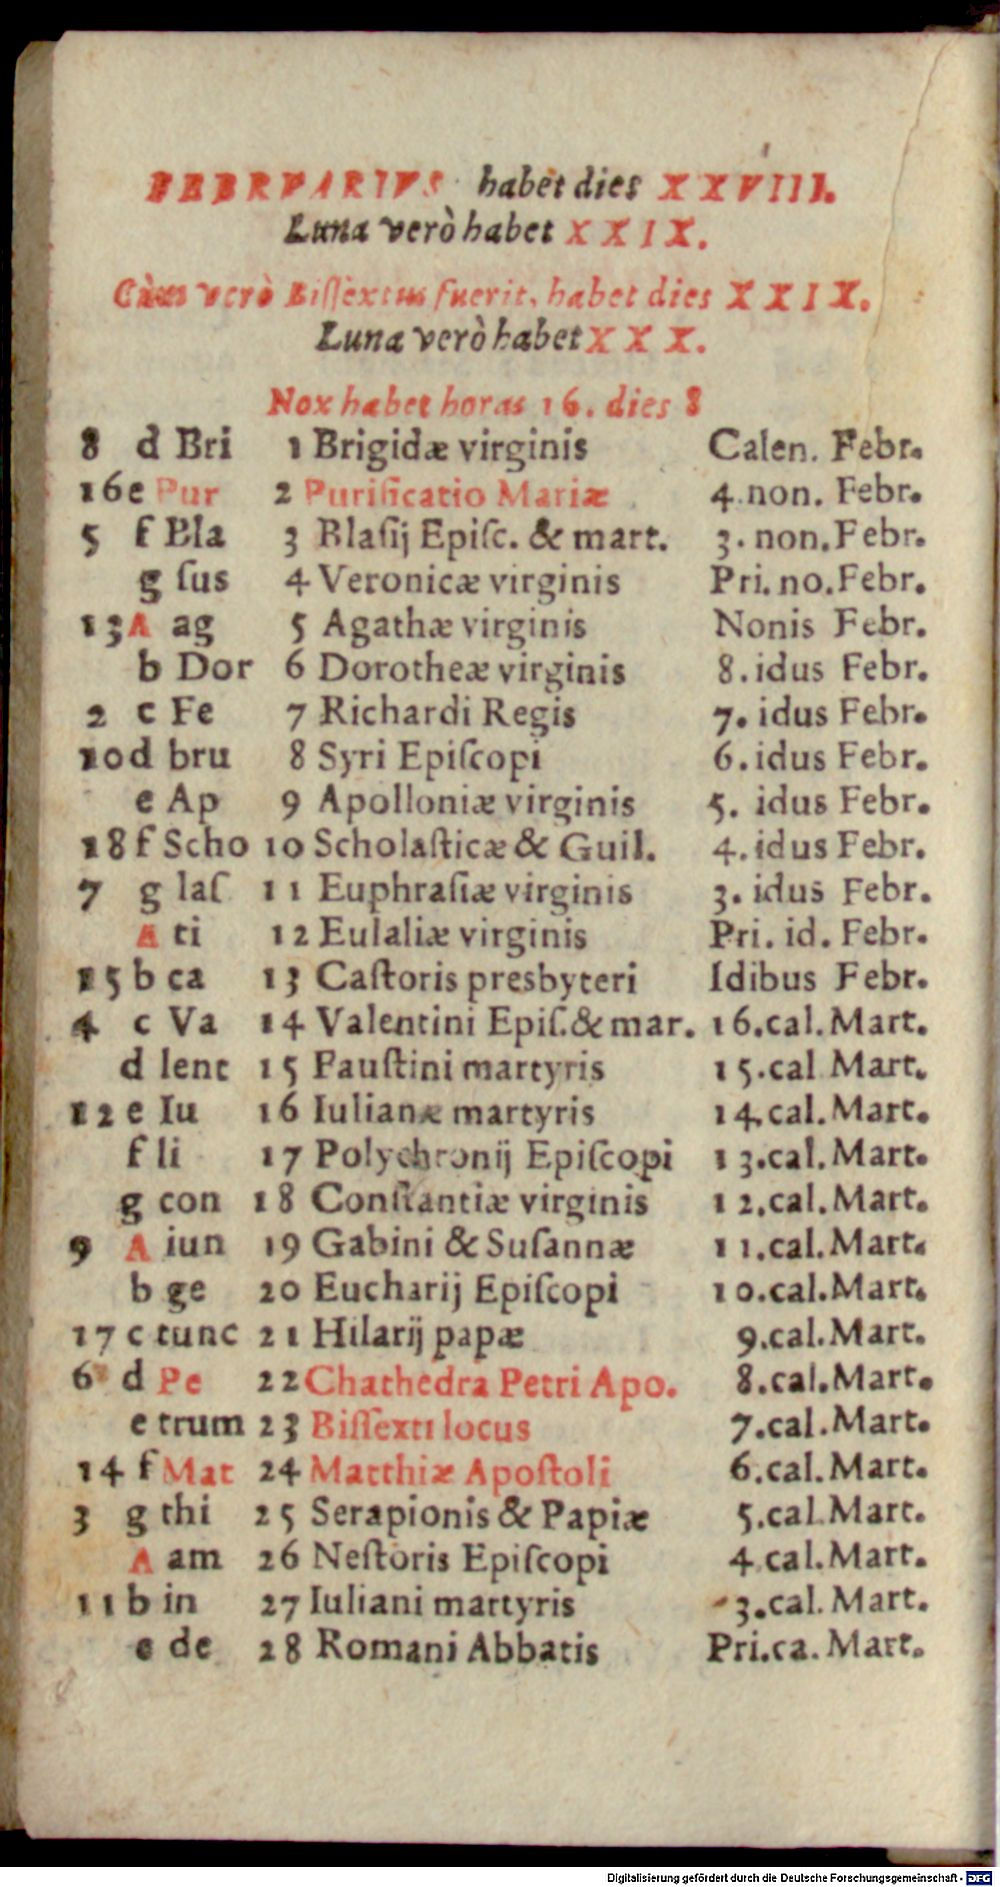 FEBRVARIVS habet dies XXVIII.
Luna verò habet XXIX.
Cùm verò Bissextus fuerit, habet dies XXIX.
Luna verò habet XXX.
Nox habet horas 16. dies 8
8 d Bri 1 Brigidæ virginis Calen. Febr.
16 e Pur 2 Purificatio Mariæ 4. non. Febr.
5 f Bla 3 Blasij Episc. & mart. 3. non. Febr.
g sus 4 Veronicæ virginis Pri. no. Febr.
13 A ag 5 Agathæ virginis Nonis Febr.
b Dor 6 Dorotheæ virginis 8. idus Febr.
2 c Fe 7 Richardi Regis 7. idus Febr.
10 d bru 8 Syri Episcopi 6. idus Febr.
e Ap 9 Apolloniæ virginis 5. idus Febr.
18 f Scho 10 Scholasticæ & Guil. 4. idus Febr.
7 g las 11 Euphrasiæ virginis 3. idus Febr.
A ti 12 Eulaliæ virginis Pri. id. Febr.
15 b ca 13 Castoris presbyteri Idibus Febr.
4 c Va 14 Valentini Epis. & mar. 16. cal. Mart.
d lent 15 Faustini martyris 15. cal Mart.
12 e Iu 16 Iulianæ martyris 14. cal. Mart.
f li 17 Polychronij Episcopi 13. cal. Mart.
g con 18 Constantiæ virginis 12. cal. Mart.
9 A iun 19 Gabini & Susannæ 11. cal. Mart.
b ge 20 Eucharij Episcopi 10. cal. Mart.
17 c tunc 21 Hilarij papæ 9. cal. Mart.
6 d Pe 22 Chathedra Petri Apo. 8. cal. Mart.
e trum 23 Bissexti locus 7. cal. Mart.
14 f Mat 24 Matthiæ Apostoli 6. cal. Mart.
3 g thi 25 Serapionis & Papiæ 5. cal. Mart.
A am 26 Nestoris Episcopi 4 cal. Mart.
11 b in 27 Iuliani martyris 3. cal. Mart.
c de 28 Romani Abbatis Pri. ca. Mart.
Digitalisierung gefördert durch die Deutsche Forschungsgemeinschaft - DFG